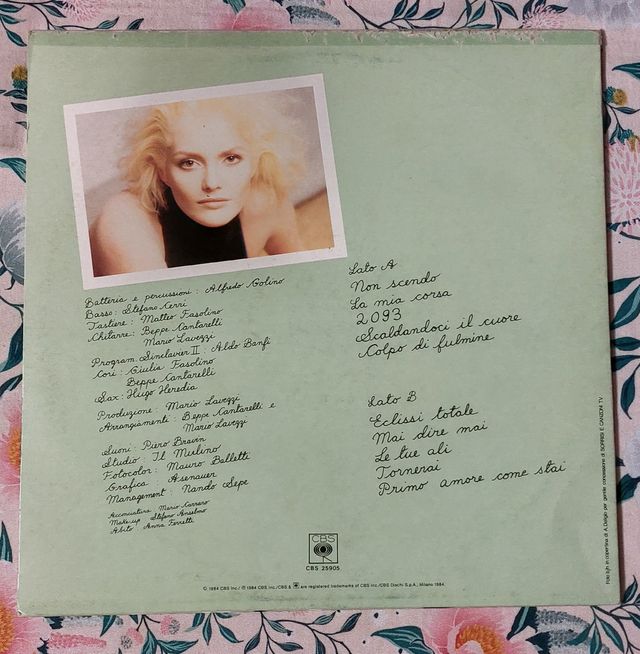 Batteria e percussioni: Alfredo Golino
Basso: Stefano Cerri
Tastiere: Matteo Fasolino
Chitarre: Beppe Cantarelli
Mario Lavezzi
Program. Sinclavier II: Aldo Banfi
Cori: Giulia Fasolino
Beppe Cantarelli
Sax: Hugo Heredia
Produzione: Mario Lavezzi
Arrangiamenti: Beppe Cantarelli e
Mario Lavezzi
Suoni: Piero Bravin
Studio: Il Mulino
Fotocolor: Mauro Balletti
Grafica: Asenauer
Management: Nando Sepe
Acconciatura: Mario Carrara
Make-up: Stefano Anselmo
Abito: Anna Ferretti
Lato A
Non scendo
La mia corsa
2093
Scaldandoci il cuore
Colpo di fulmine
Lato B
Eclissi totale
Mai dire mai
Le tue ali
Tornerai
Primo amore come stai
CBS
CBS 25905
© 1984 CBS Inc./ ℗ 1984 CBS Inc./CBS & are registered trademarks of CBS Inc./CBS Dischi S.p.A., Milano 1984.
Foto b/n in copertina di A. Deligio per gentile concessione di SORRISI E CANZONI TV